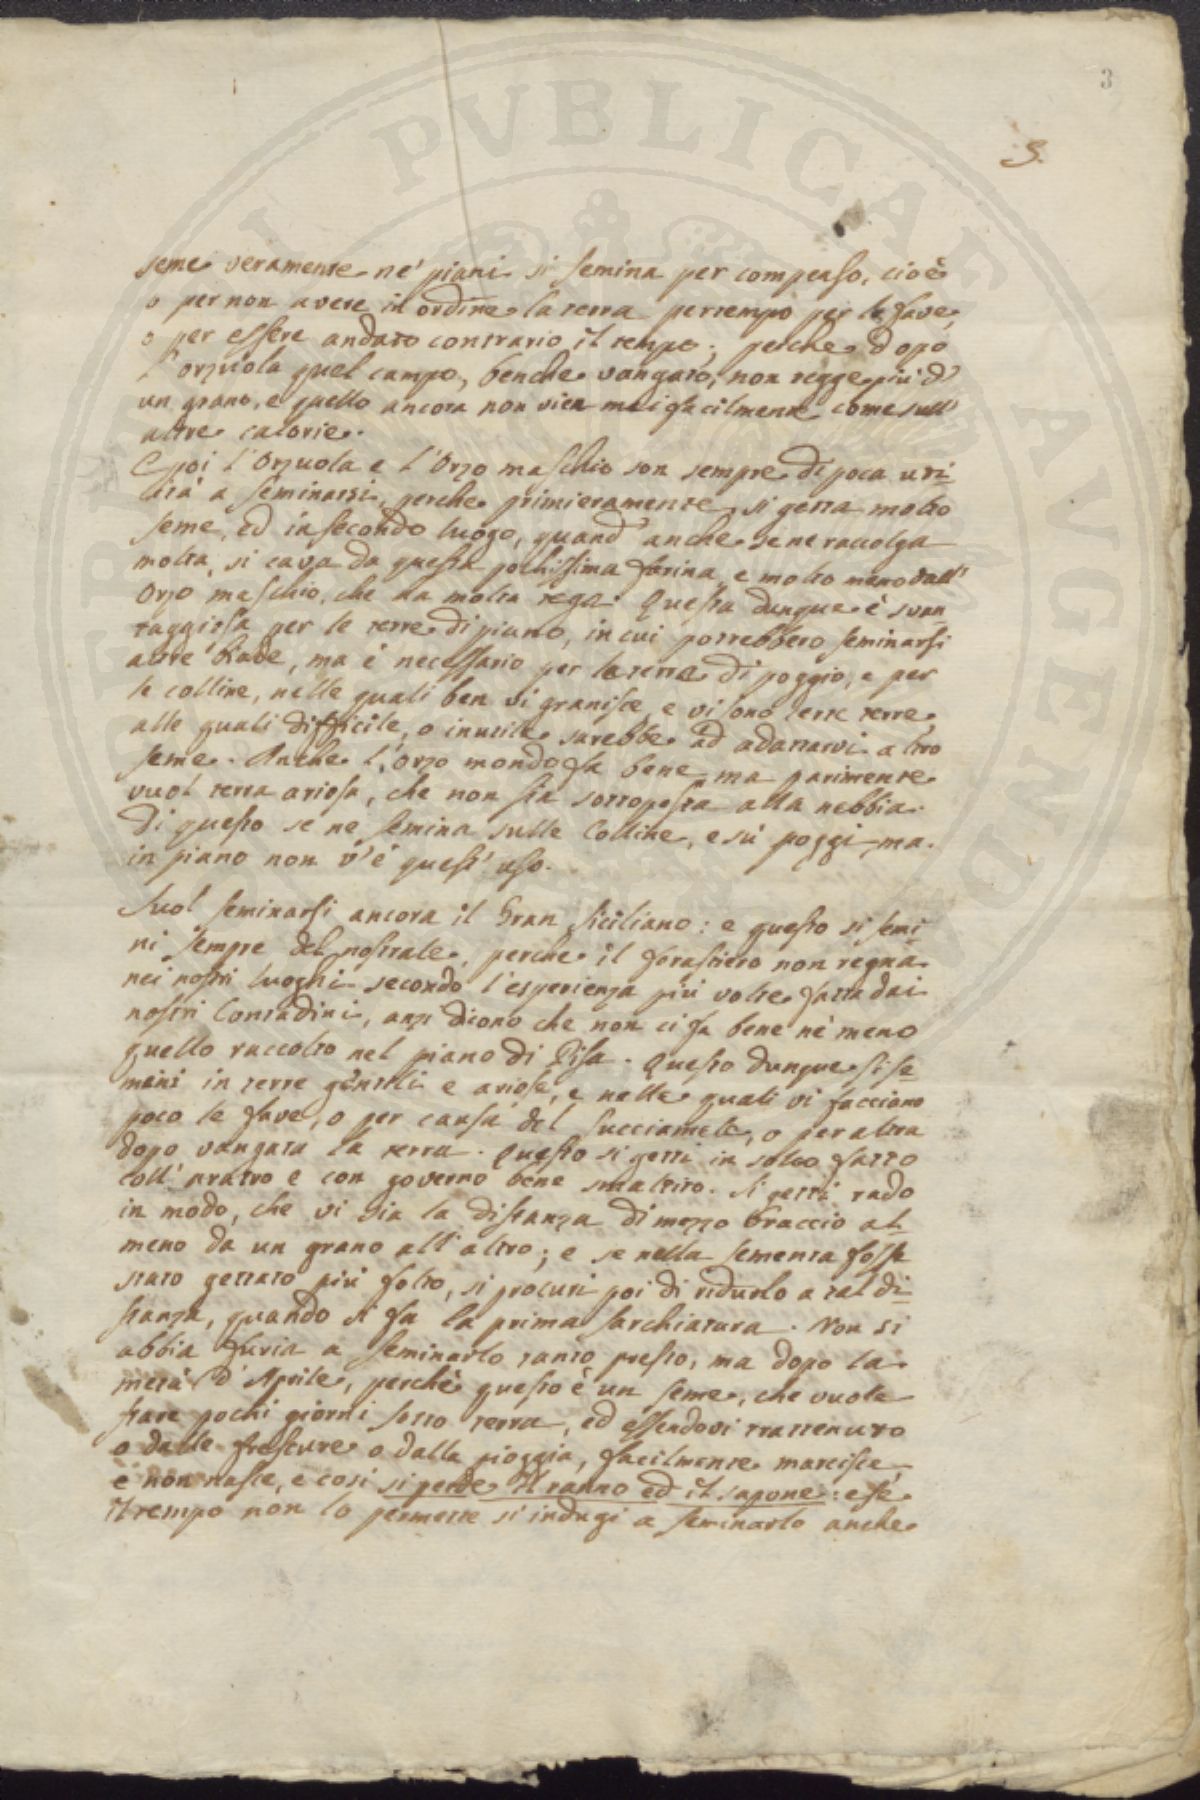 3
3.
seme veramente ne' piani si semina per compenso, cioè
o per non avere in ordine la terra pertempo per le fave,
o per essere andato contrario il tempo; perche dopo
l'orzuola quel campo, benche vangato, non regge più d'
un grano, e quello ancora non vien mai facilmente come sull'
altre calorie.
E poi l'Orzuola e l'Orzo maschio son sempre di poca uti-
lità a seminarsi, perche primieramente si getta molto
seme, ed in secondo luogo, quand' anche se ne raccolga
molta, si cava da questa pochissima farina, e molto meno dall'
Orzo maschio, che ha molta rega. Questa dunque è svan-
taggiosa per le terre di piano, in cui potrebbero seminarsi
altre biade, ma è necessario per le terre di poggio, e per
le colline, nelle quali ben vi granisce, e vi sono certe terre,
alle quali difficile, o inutile sarebbe ad adattarvi altro
seme. Anche l'Orzo mondo fa bene, ma parimente
vuol terra ariosa, che non sia sottoposta alla nebbia.
Di questo se ne semina sulle Colline, e sù poggi, ma
in piano non v'è quest' uso.
Suol seminarsi ancora il Gran Siciliano: e questo si semi-
ni sempre del nostrale, perche il forastiero non regna
nei nostri luoghi secondo l'esperienza più volte fatta dai
nostri Contadini, anzi dicono che non ci fa bene nè meno
quello raccolto nel piano di Pisa. Questo dunque si se-
mini in terre gentili e ariose, e nelle quali vi facciano
poco le fave, o per causa del succiamele, o per altra
dopo vangata la terra. Questo si getti in solco fatto
coll' aratro e con governo bene smaltito. Si getti rado
in modo, che vi sia la distanza di mezzo braccio al-
meno da un grano all' altro; e se nella sementa fosse
stato gettato più folto, si procuri poi di ridurlo a tal di-
stanza, quando si fa la prima sarchiatura. Non si
abbia furia a seminarlo tanto presto, ma dopo la
metà d'Aprile, perchè questo è un seme, che vuole
stare pochi giorni sotto terra, ed essendovi trattenuto
o dalle frescure o dalla pioggia, facilmente marcisce,
e non nasce, e così si perde Il ranno ed il sapone: e se
il tempo non lo permette si indugi a seminarlo anche